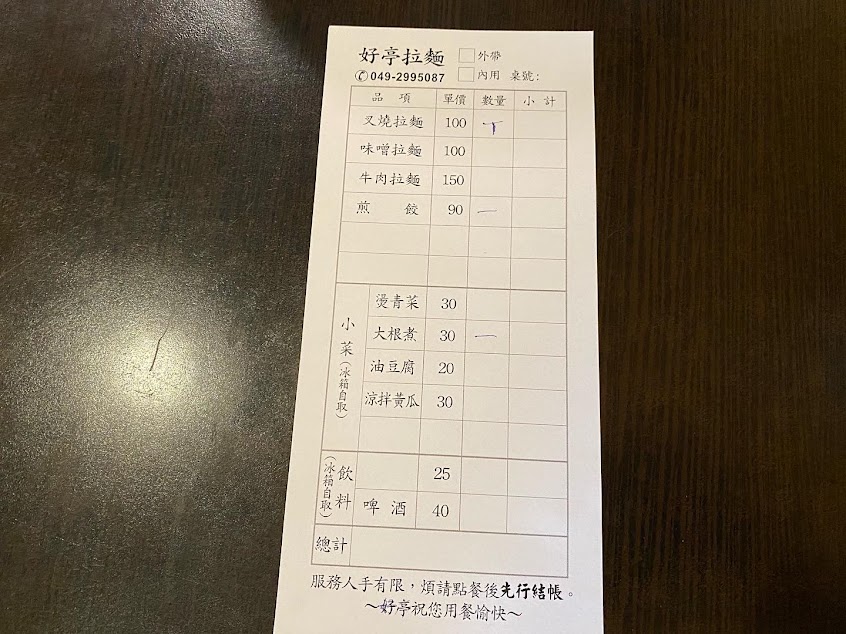 好亭拉麵 外帶
✆049-2995087 內用 桌號：
品項 單價 數量 小計
叉燒拉麵 100 丅
味噌拉麵 100
牛肉拉麵 150
煎餃 90 一
小菜(冰箱自取)
燙青菜 30
大根煮 30 一
油豆腐 20
涼拌黃瓜 30
飲料(冰箱自取)
25
啤酒 40
總計
服務人手有限，煩請點餐後先行結帳。
～好亭祝您用餐愉快～